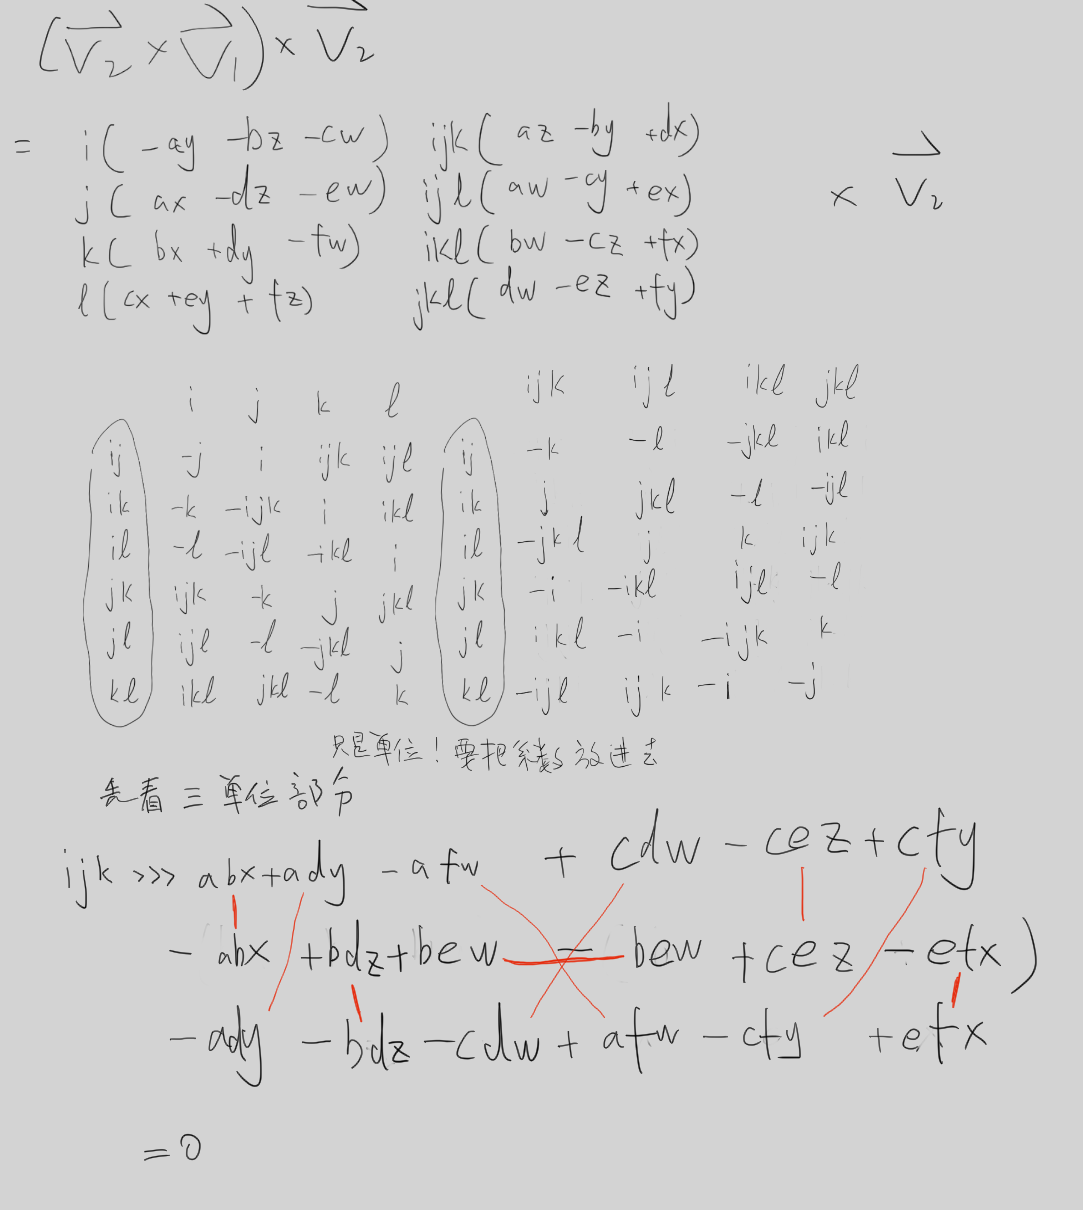 (V₂ × V₁) × V₂
= i( -ay -bz -cw) ijk( az -by +dx)
j( ax -dz -ew) ijl(aw -cy +ex) × V₂
k( bx +dy -fw) ikl( bw -cz +fx)
l(cx +ey + fz) jkl( dw -ez +fy)
i j k l ijk ijl ikl jkl
ij -j i ijk ijl ij -k -l -jkl ikl
ik -k -ijk i ikl ik j jkl -l -ijl
il -l -ijl -ikl i il -jkl j k ijk
jk ijk -k j jkl jk -i -ikl ijl -l
jl ijl -l -jkl j jl ikl -i -ijk k
kl ikl jkl -l k kl -ijl ijk -i -j
只是單位!要把係數放進去
先看三單位部分
ijk >>> abx+ady -afw + cdw - cez + cfy
- abx +bdz+bew - bew +cez - efx)
- ady - bdz -cdw + afw - cfy +efx
= 0